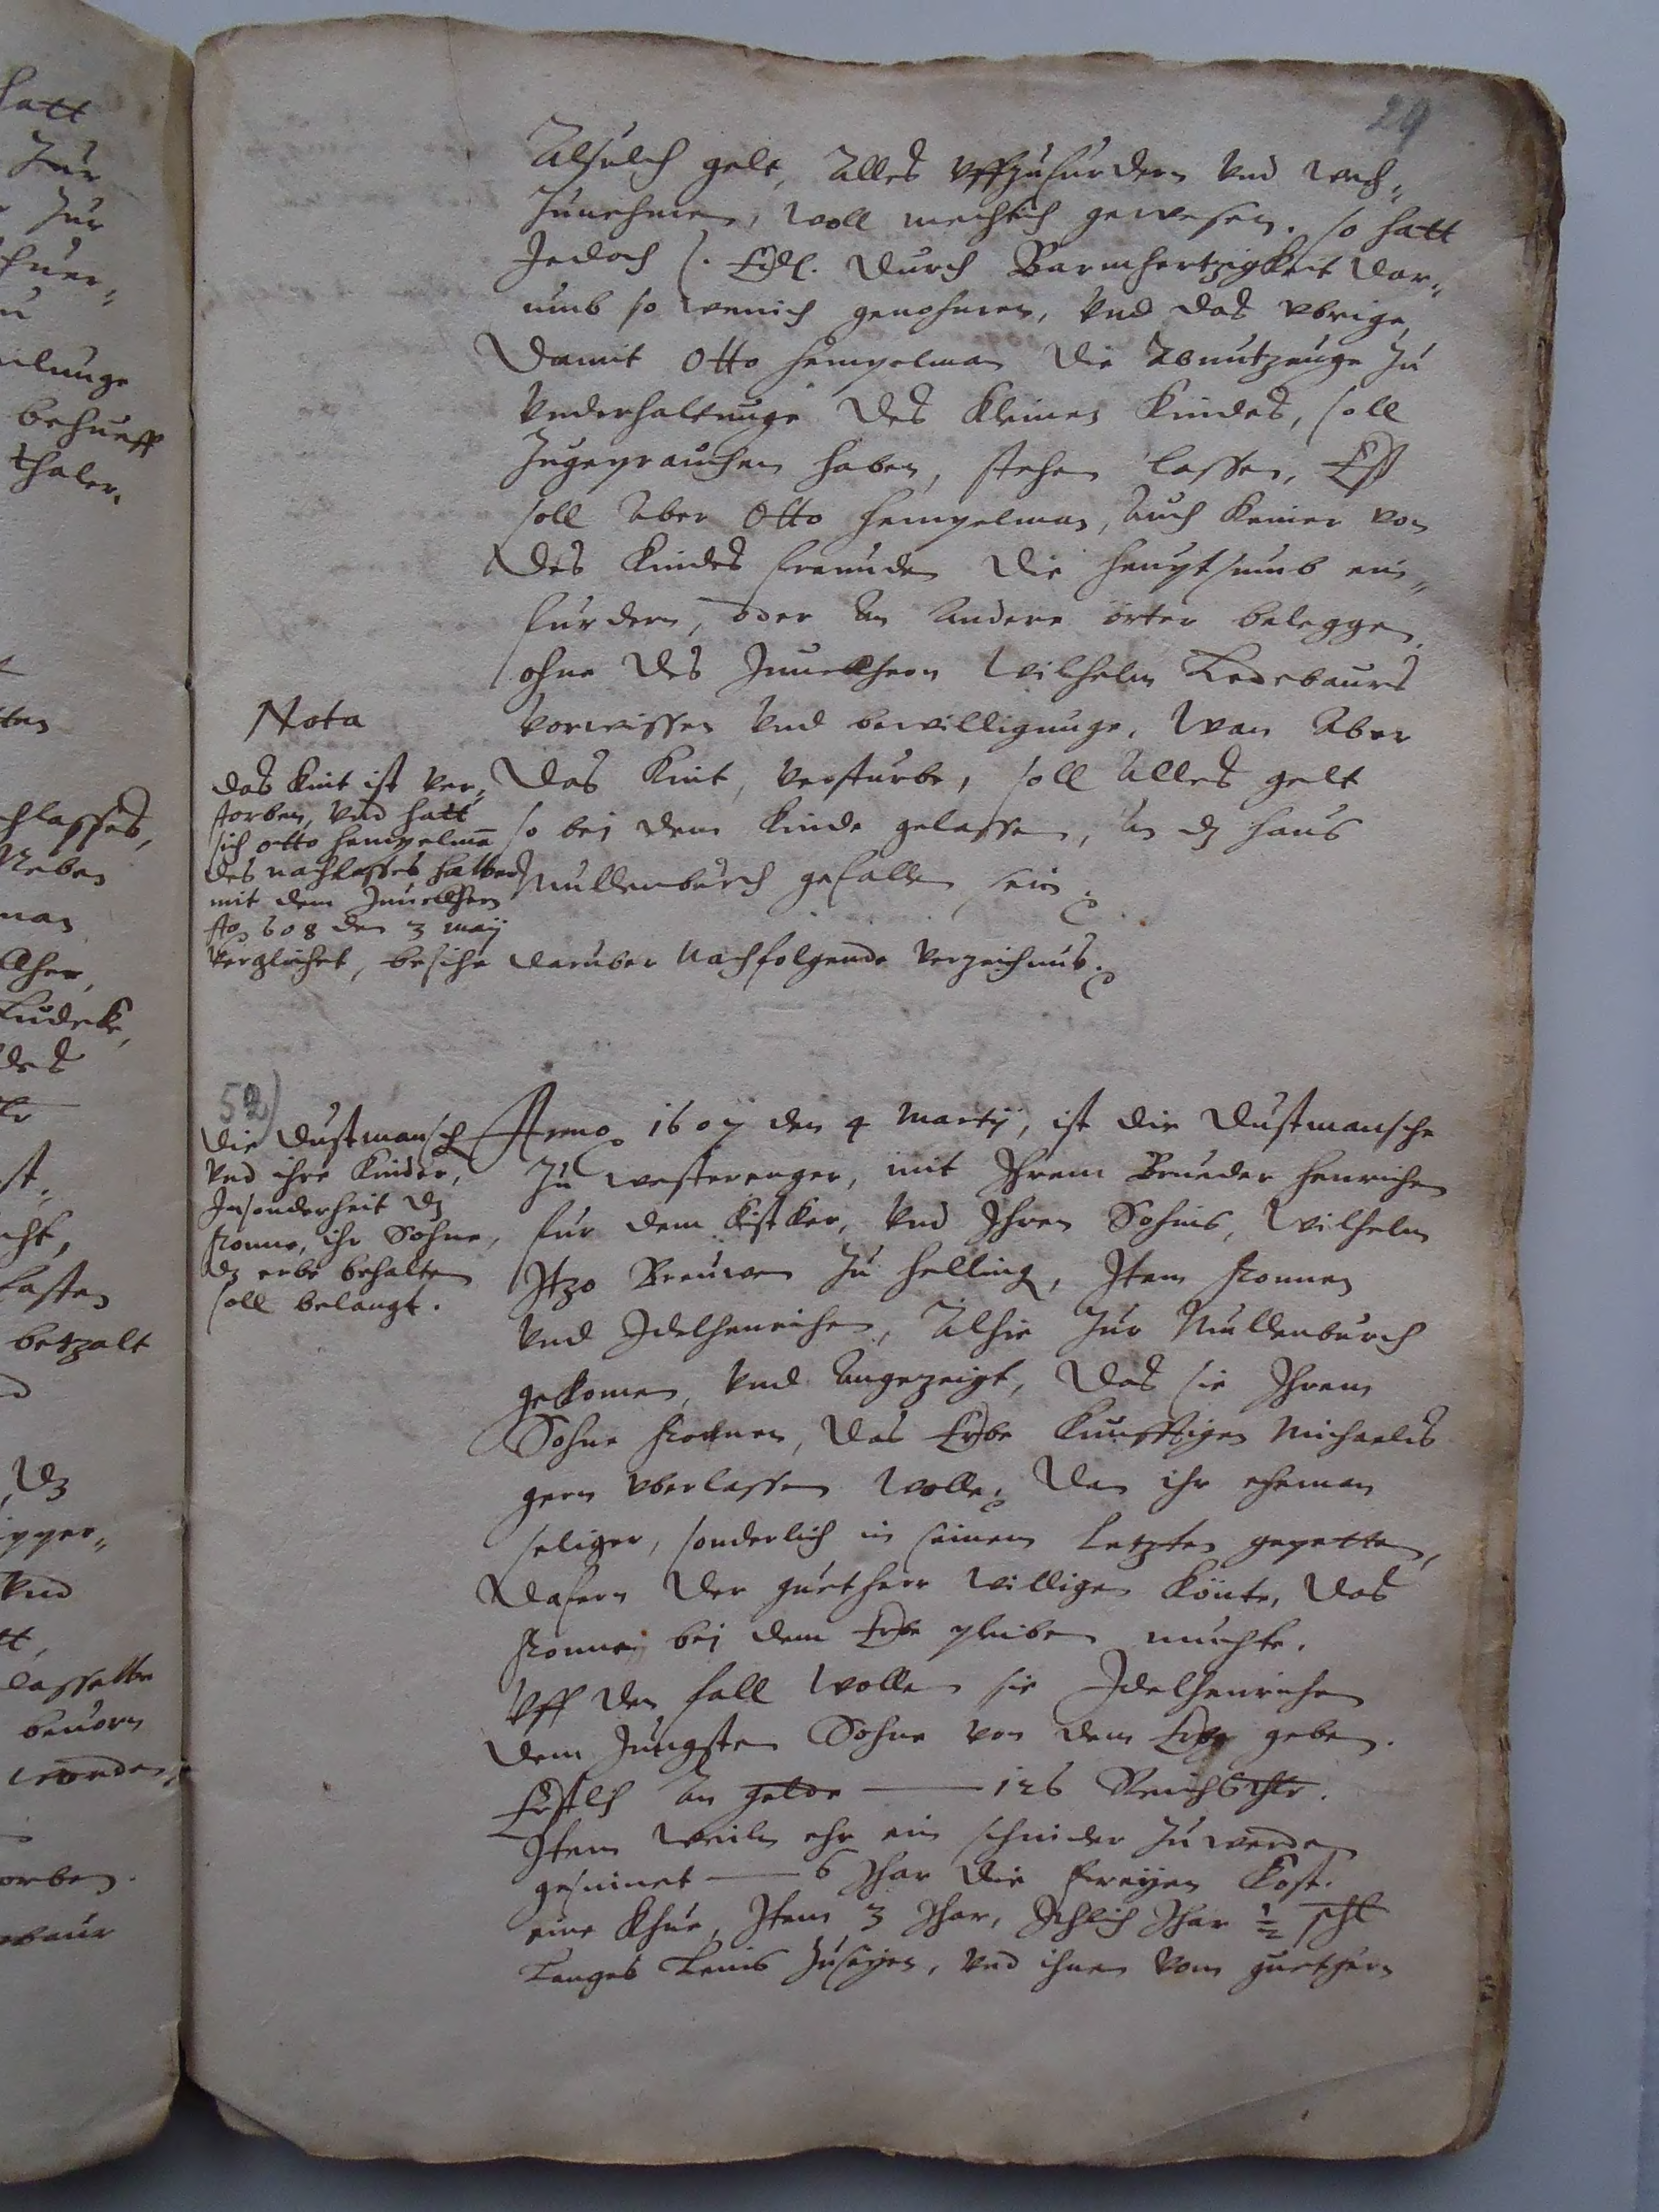 29
Alsulch gelt, Alles vffzufurdern vnd wech„
Zunehmen, woll mechtich gewesen. so hatt
Jedoch s. Edl. durch Barmhertzigkeit dar„
umb so wenich genohmen, vnd das vbrige,
damit Otto Hempelman die Abnutzunge zu
vnderhaltunge des kleinen Kindes, soll
Zugeprauchen haben, stehen lassen, Eß
soll aber Otto Hempelman, auch keiner von
des Kindes freunden die heuptsumb ein„
furdern, oder an andere örter beleggen,
ohne des Junckhern Wilhelm Ledebaurs
vorwissen vnd bewilligunge, Wan aber
das Kint, versturbe, soll alles gelt
so bei dem Kinde gelassen, an dz haus
Mullenburch gefallen sein.
Nota
das Kint ist ver„
storben, vnd hatt
sich otto Hempelman
des nachlasses halben
mit dem Junckhern
Ao 608 den 3 maij
verglichet, besihe daruber nachfolgende verzeichnus.
52)
die dustmansche
vnd ihre Kinder,
Insonderheit dz
Ronne, ihr Sohne,
dz erbe behalten
soll belangt.
Anno 1607 den 4 Martij, ist die dustmansche
Zu westerenger, mit Ihrem Brueder Henrichen
fur dem, vnd Ihren Sohns, Wilhelm
Itzo Breuwer zu Helling, Item Ronnen
vnd Idelhenrichen, Alhie zur Mullenburch
gekomen, vnd angezeigt, das sie Ihrem
Sohne Ronnen, das Erbe kunfftigen Michaelis
gern vberlassen wolle, dan ihr eheman
seliger, sonderlich in seinem letzten gepetten,
dafern der guetherr willigen könte, das
Ronne bei dem Erbe pleiben muchte.
Vff den fall wollen sie Idelhenrichen
dem Jungsten Sohne von dem Erbe geben.
Erstlich an gelde — 126 Reichsthlr.
Item weiln ehr ein schnider zu werden
gesinnet — 6 Jhar die freyen Kost.
eine Khue, Item 3 Jhar, Jehlich Jhar ½ schl
Langes Leins zuseyen, vnd ihnen vom guethern